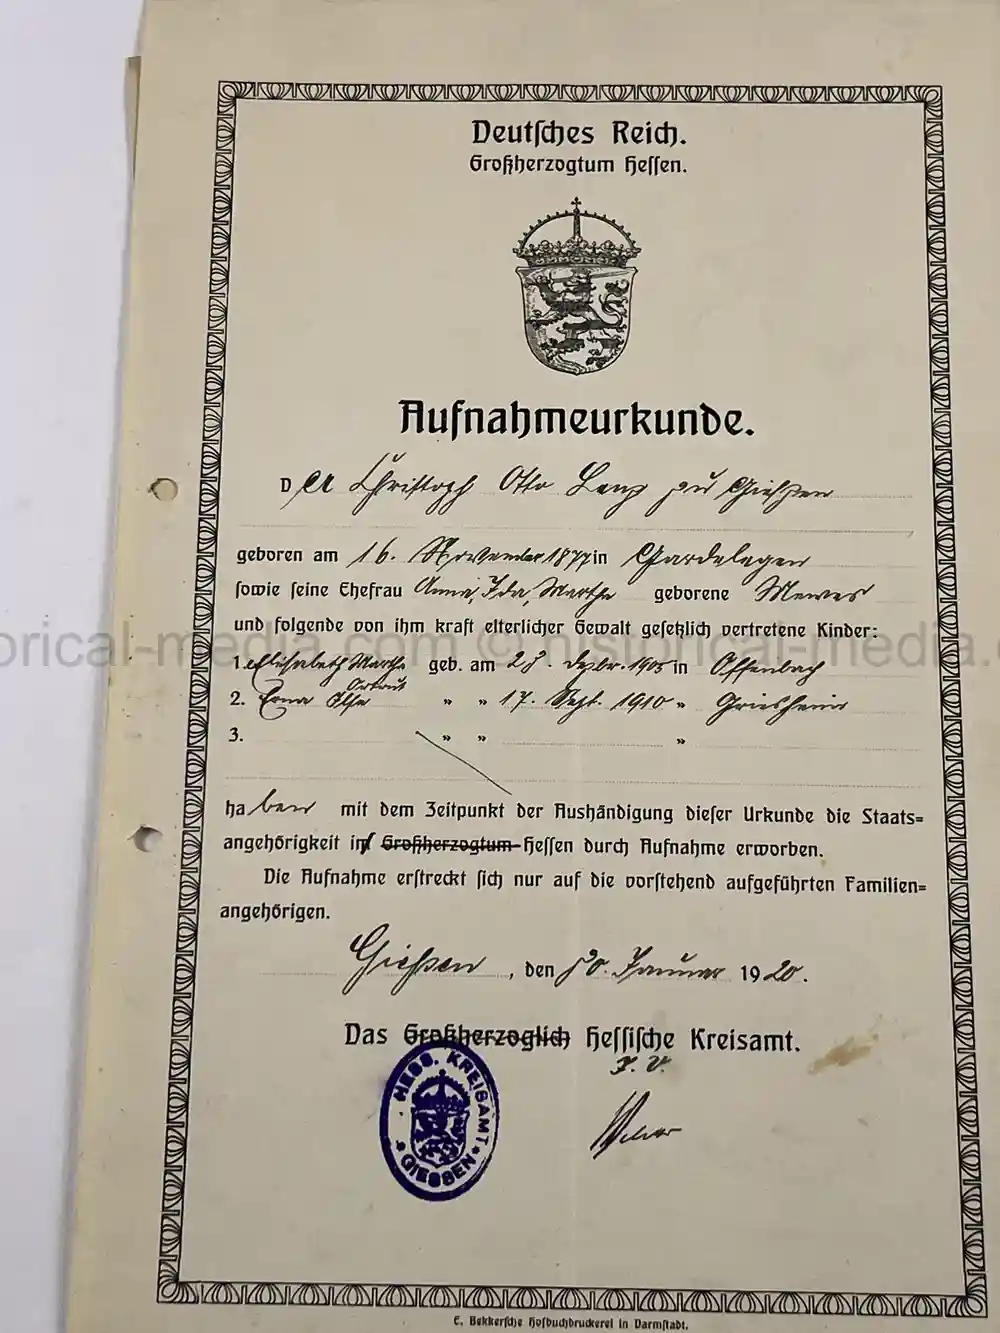 Deutsches Reich.
Großherzogtum Hessen.
Aufnahmeurkunde.
Der Christoph Otto Lenz zu Gießen
geboren am 16. November 1877 in Gardelegen
sowie seine Ehefrau Anna, Ida, Martha geborene Mewes
und folgende von ihm kraft elterlicher Gewalt gesetzlich vertretene Kinder:
1. Elisabeth Martha geb. am 23. Dezbr. 1905 in Offenbach
Ortrut
2. Erna Ilse " " 17. Sept. 1910 " Griesheim
3. " " "
haben mit dem Zeitpunkt der Aushändigung dieser Urkunde die Staats=
angehörigkeit in Großherzogtum Hessen durch Aufnahme erworben.
Die Aufnahme erstreckt sich nur auf die vorstehend aufgeführten Familien=
angehörigen.
Gießen, den 30. Januar 1920.
Das Großherzoglich Hessische Kreisamt.
I. V.
HESS. KREISAMT
GIESSEN
C. Bekkersche Hofbuchdruckerei in Darmstadt.
orical-media.com © historical-media.c